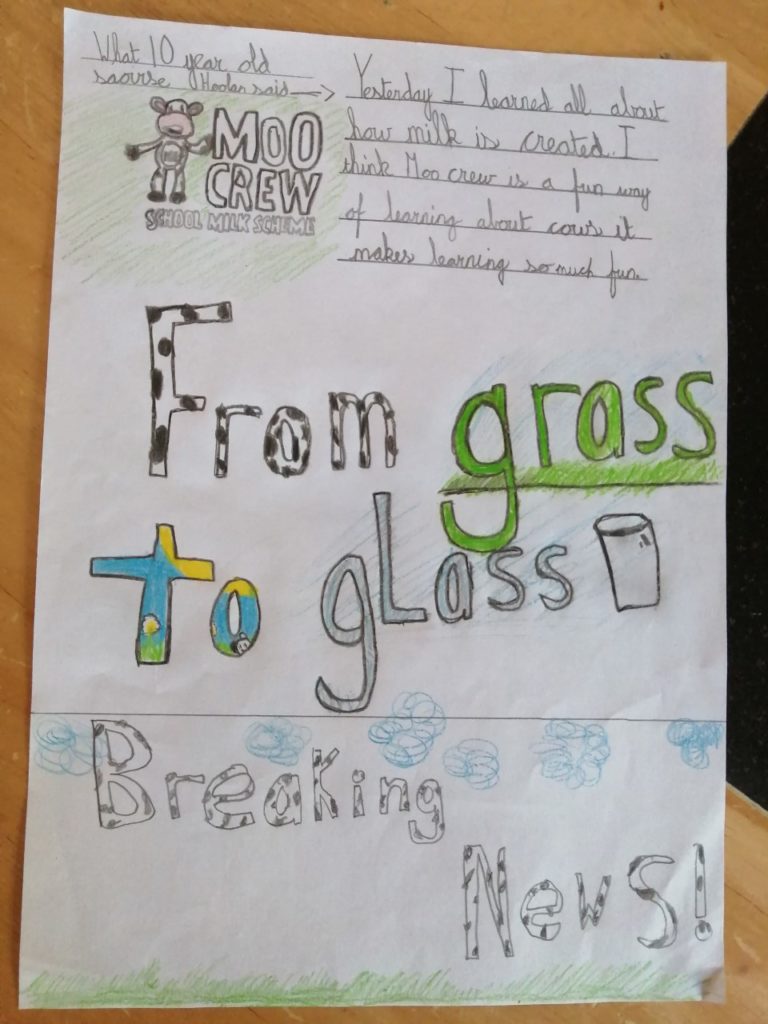 What 10 year old
saoirse Hoolan said
Yesterday I learned all about
how milk is created. I
think Moo crew is a fun way
of learning about cows it
makes learning so much fun.
MOO
CREW
SCHOOL MILK SCHEME
From grass
to glass
Breaking
News!